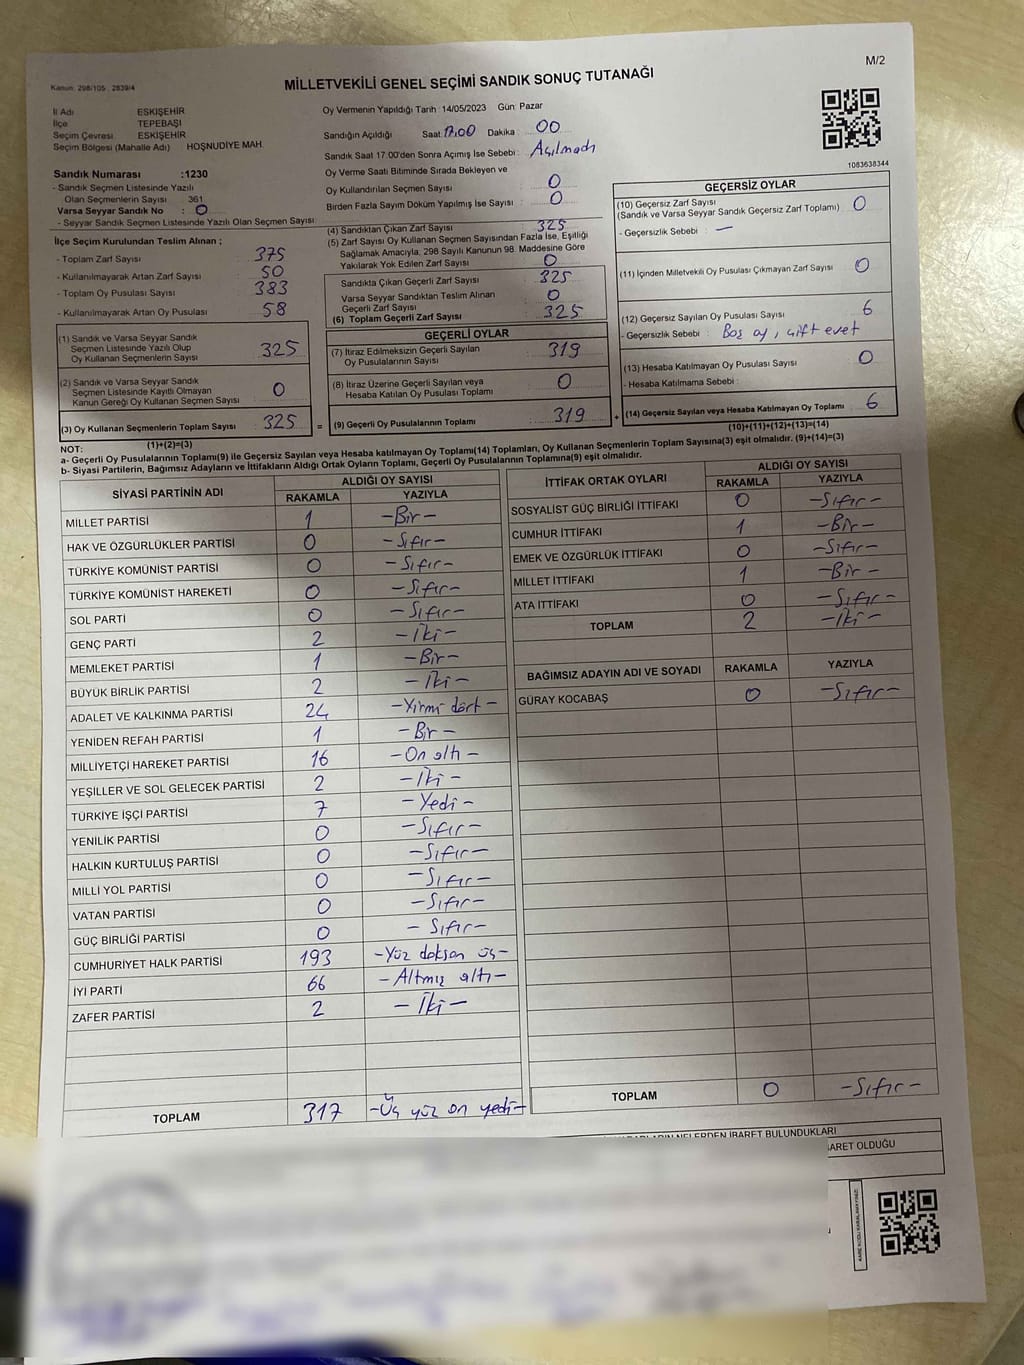 M/2
Kanun: 298/105, 2839/4
MİLLETVEKİLİ GENEL SEÇİMİ SANDIK SONUÇ TUTANAĞI
İl Adı ESKİŞEHİR
İlçe TEPEBAŞI
Seçim Çevresi ESKİŞEHİR
Seçim Bölgesi (Mahalle Adı) HOŞNUDİYE MAH.
Oy Vermenin Yapıldığı Tarih :14/05/2023 Gün: Pazar
Sandığın Açıldığı Saat 17.00 Dakika : 00
Sandık Saat 17:00'den Sonra Açılmış İse Sebebi: Açılmadı
Oy Verme Saati Bitiminde Sırada Bekleyen ve
Oy Kullandırılan Seçmen Sayısı 0
Birden Fazla Sayım Döküm Yapılmış İse Sayısı 0
1083638344
Sandık Numarası :1230
- Sandık Seçmen Listesinde Yazılı
Olan Seçmenlerin Sayısı 361
Varsa Seyyar Sandık No : 0
- Seyyar Sandık Seçmen Listesinde Yazılı Olan Seçmen Sayısı:
İlçe Seçim Kurulundan Teslim Alınan ;
- Toplam Zarf Sayısı 375
- Kullanılmayarak Artan Zarf Sayısı 50
- Toplam Oy Pusulası Sayısı 383
- Kullanılmayarak Artan Oy Pusulası 58
(1) Sandık ve Varsa Seyyar Sandık
Seçmen Listesinde Yazılı Olup
Oy Kullanan Seçmenlerin Sayısı 325
(2) Sandık ve Varsa Seyyar Sandık
Seçmen Listesinde Kayıtlı Olmayan
Kanun Gereği Oy Kullanan Seçmen Sayısı 0
(3) Oy Kullanan Seçmenlerin Toplam Sayısı : 325
(1)+(2)=(3)
(4) Sandıktan Çıkan Zarf Sayısı 325
(5) Zarf Sayısı Oy Kullanan Seçmen Sayısından Fazla İse, Eşitliği
Sağlamak Amacıyla, 298 Sayılı Kanunun 98. Maddesine Göre
Yakılarak Yok Edilen Zarf Sayısı 0
Sandıkta Çıkan Geçerli Zarf Sayısı 325
Varsa Seyyar Sandıktan Teslim Alınan
Geçerli Zarf Sayısı 0
(6) Toplam Geçerli Zarf Sayısı : 325
GEÇERLİ OYLAR
(7) İtiraz Edilmeksizin Geçerli Sayılan
Oy Pusulalarının Sayısı 319
(8) İtiraz Üzerine Geçerli Sayılan veya
Hesaba Katılan Oy Pusulası Toplamı 0
= (9) Geçerli Oy Pusulalarının Toplamı : 319 +
GEÇERSİZ OYLAR
(10) Geçersiz Zarf Sayısı
(Sandık ve Varsa Seyyar Sandık Geçersiz Zarf Toplamı) 0
- Geçersizlik Sebebi : —
(11) İçinden Milletvekili Oy Pusulası Çıkmayan Zarf Sayısı 0
(12) Geçersiz Sayılan Oy Pusulası Sayısı 6
- Geçersizlik Sebebi : Boş oy, çift evet
(13) Hesaba Katılmayan Oy Pusulası Sayısı 0
- Hesaba Katılmama Sebebi :
(14) Geçersiz Sayılan veya Hesaba Katılmayan Oy Toplamı : 6
(10)+(11)+(12)+(13)=(14)
NOT:
a- Geçerli Oy Pusulalarının Toplamı(9) ile Geçersiz Sayılan veya Hesaba katılmayan Oy Toplamı(14) Toplamları, Oy Kullanan Seçmenlerin Toplam Sayısına(3) eşit olmalıdır. (9)+(14)=(3)
b- Siyasi Partilerin, Bağımsız Adayların ve İttifakların Aldığı Ortak Oyların Toplamı, Geçerli Oy Pusulalarının Toplamına(9) eşit olmalıdır.
SİYASİ PARTİNİN ADI ALDIĞI OY SAYISI
RAKAMLA YAZIYLA
MİLLET PARTİSİ 1 -Bir-
HAK VE ÖZGÜRLÜKLER PARTİSİ 0 -Sıfır-
TÜRKİYE KOMÜNİST PARTİSİ 0 -Sıfır-
TÜRKİYE KOMÜNİST HAREKETİ 0 -Sıfır-
SOL PARTİ 0 -Sıfır-
GENÇ PARTİ 2 -İki-
MEMLEKET PARTİSİ 1 -Bir-
BÜYÜK BİRLİK PARTİSİ 2 -İki-
ADALET VE KALKINMA PARTİSİ 24 -Yirmi dört-
YENİDEN REFAH PARTİSİ 1 -Bir-
MİLLİYETÇİ HAREKET PARTİSİ 16 -On altı-
YEŞİLLER VE SOL GELECEK PARTİSİ 2 -İki-
TÜRKİYE İŞÇİ PARTİSİ 7 -Yedi-
YENİLİK PARTİSİ 0 -Sıfır-
HALKIN KURTULUŞ PARTİSİ 0 -Sıfır-
MİLLİ YOL PARTİSİ 0 -Sıfır-
VATAN PARTİSİ 0 -Sıfır-
GÜÇ BİRLİĞİ PARTİSİ 0 -Sıfır-
CUMHURİYET HALK PARTİSİ 193 -Yüz doksan üç-
İYİ PARTİ 66 -Altmış altı-
ZAFER PARTİSİ 2 -İki-
TOPLAM 317 -Üç yüz on yedi-
İTTİFAK ORTAK OYLARI ALDIĞI OY SAYISI
RAKAMLA YAZIYLA
SOSYALİST GÜÇ BİRLİĞİ İTTİFAKI 0 -Sıfır-
CUMHUR İTTİFAKI 1 -Bir-
EMEK VE ÖZGÜRLÜK İTTİFAKI 0 -Sıfır-
MİLLET İTTİFAKI 1 -Bir-
ATA İTTİFAKI 0 -Sıfır-
TOPLAM 2 -İki-
BAĞIMSIZ ADAYIN ADI VE SOYADI RAKAMLA YAZIYLA
GÜRAY KOCABAŞ 0 -Sıfır-
TOPLAM 0 -Sıfır-
NELERDEN İBARET BULUNDUKLARI
OLDUĞU